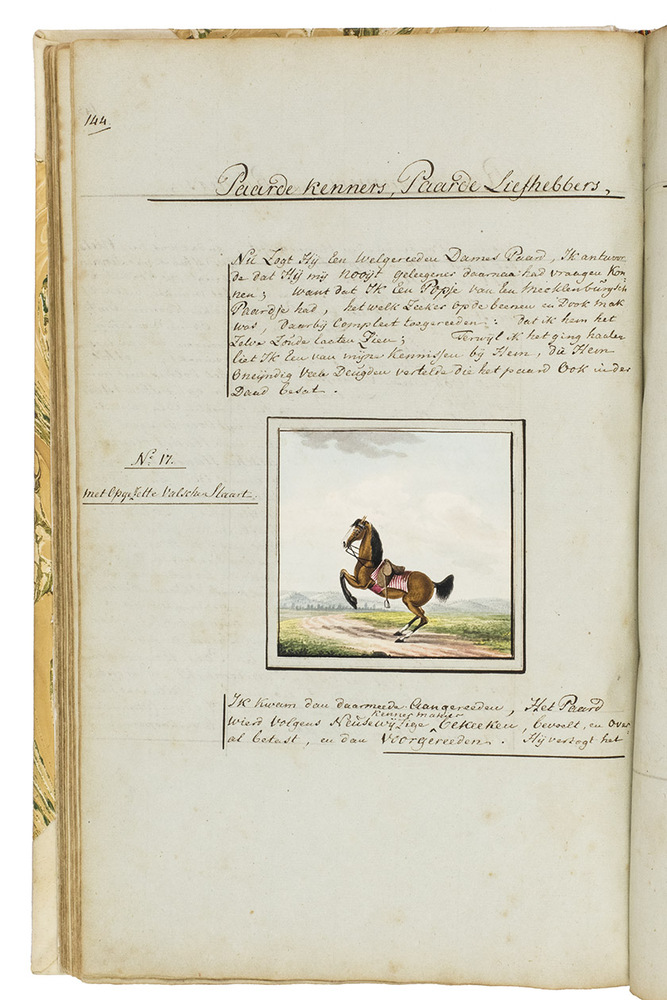 144.
Paarde kenners, Paarde Liefhebbers,
Nu Zogt Hij Een Welgereeden Dames Paard, Ik antwoor
de dat Hij mij nooijt geleegener daarnaa had vraagen kon
nen; want dat Ik Een Popje van Een Mecklenburgsch
Paardje had, het welk Zeeker op de beenen en Dook mak
was, daarbij Compleet toegereeden: dat ik hem het
Zelve Zoude laaten Zien; Terwijl ik het ging haalen
liet Ik Een van mijne Kennissen bij Hem, die Hem
Oneijndig Veele Deugden vertelde die het paard Ook in der
Daad besat.
No. 17.
met Opgezette Valsche Staart.
Ik kwam dan daarmeede Aangereeden, Het Paard
wierd Volgens Neuswijzige kenner manier bekeeken, bevoelt, en Over
al betast, en dan Voorgereeden. Hij verzogt het